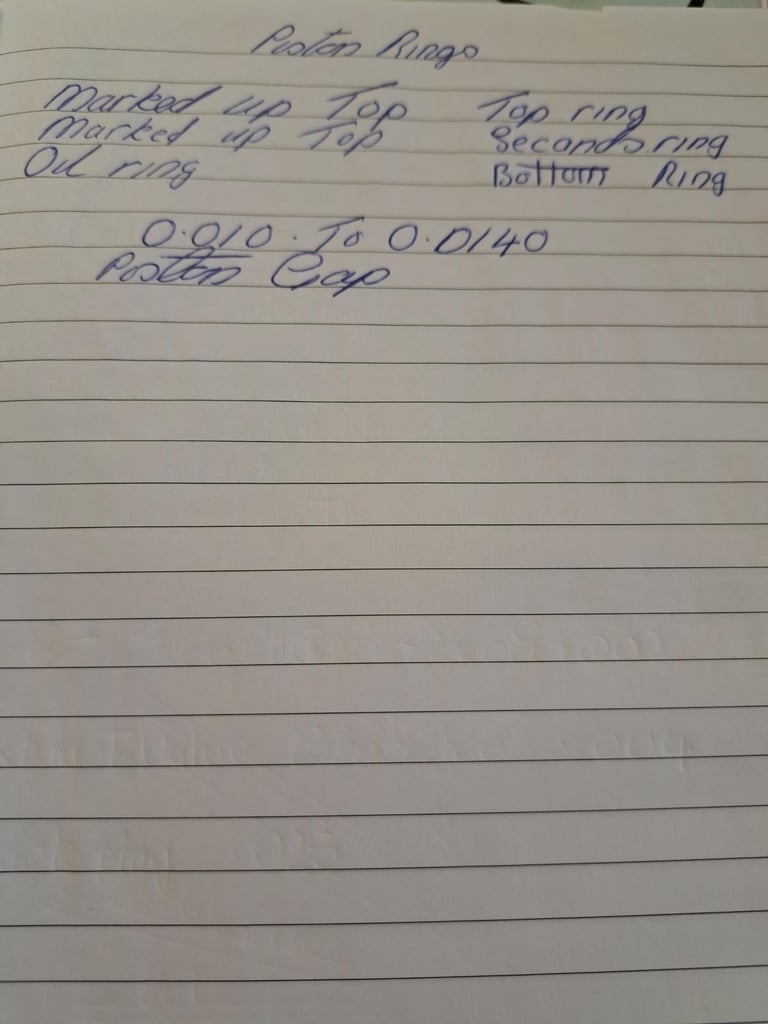 Piston Rings
Marked up Top Top ring
Marked up Top Seconds ring
Oil ring Bottom Ring
0.010. To 0.0140
Piston Gap